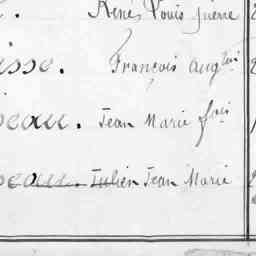 René Louis pierre
isse. François aug^tin
eau. Jean Marie f^ois
eau. Julien Jean Marie